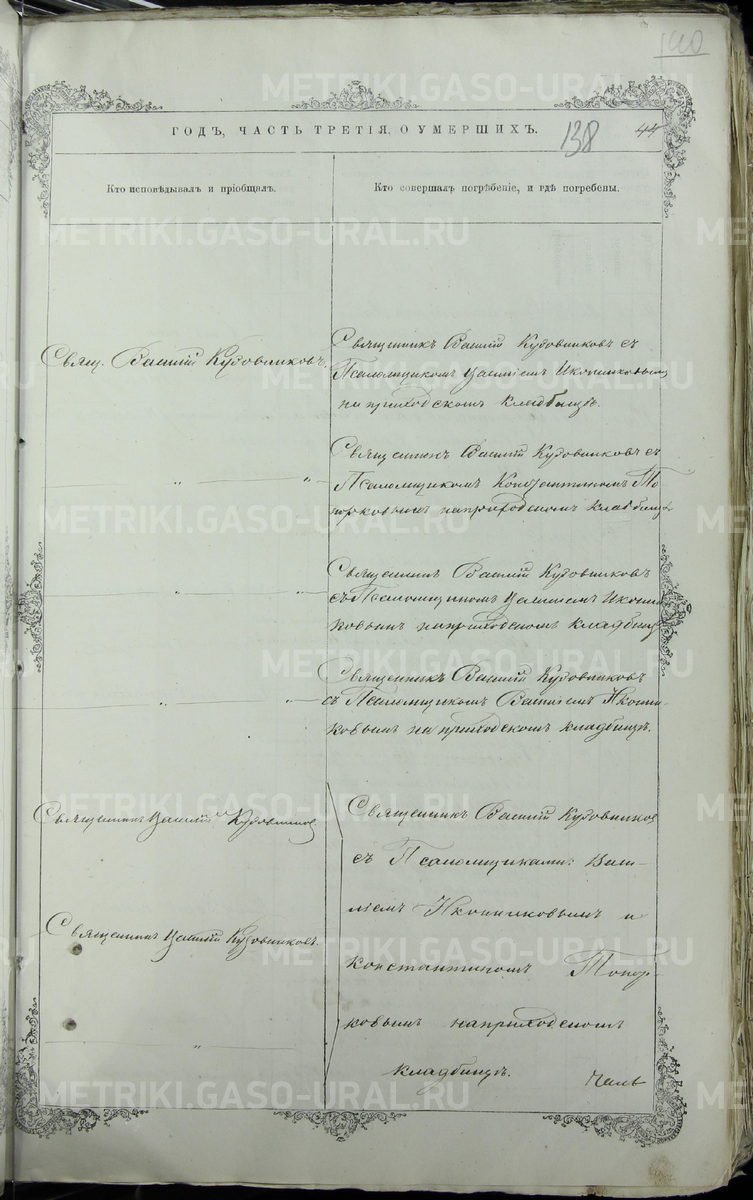 140
ГОДЪ, ЧАСТЬ ТРЕТІЯ, О УМЕРШИХЪ.
138
44
Кто исповѣдывалъ и пріобщалъ.
Кто совершалъ погрѣбеніе, и гдѣ погребены.
Свящ. Василій Кудовниковъ.
Священникъ Василій Кудовниковъ съ
Псаломщикомъ Василіемъ Иконниковымъ
на приходскомъ кладбищѣ.
" "
Священникъ Василій Кудовниковъ съ
Псаломщикомъ Константиномъ То
порковымъ на приходскомъ кладбищѣ
" "
Священникъ Василій Кудовниковъ
съ Псаломщикомъ Василіемъ Иконни
ковымъ на приходскомъ кладбищѣ
" "
Священникъ Василій Кудовниковъ
съ Псаломщикомъ Василіемъ Иконни-
ковымъ на приходскомъ кладбищѣ.
Священникъ Василій Кудовниковъ
Священникъ Василій Кудовниковъ.
"
Священникъ Василій Кудовников
съ Псаломщиками: Васи-
ліемъ Иконниковымъ и
Константиномъ Топор-
ковымъ на приходскомъ
кладбищѣ.
METRIKI.GASO-URAL.RU